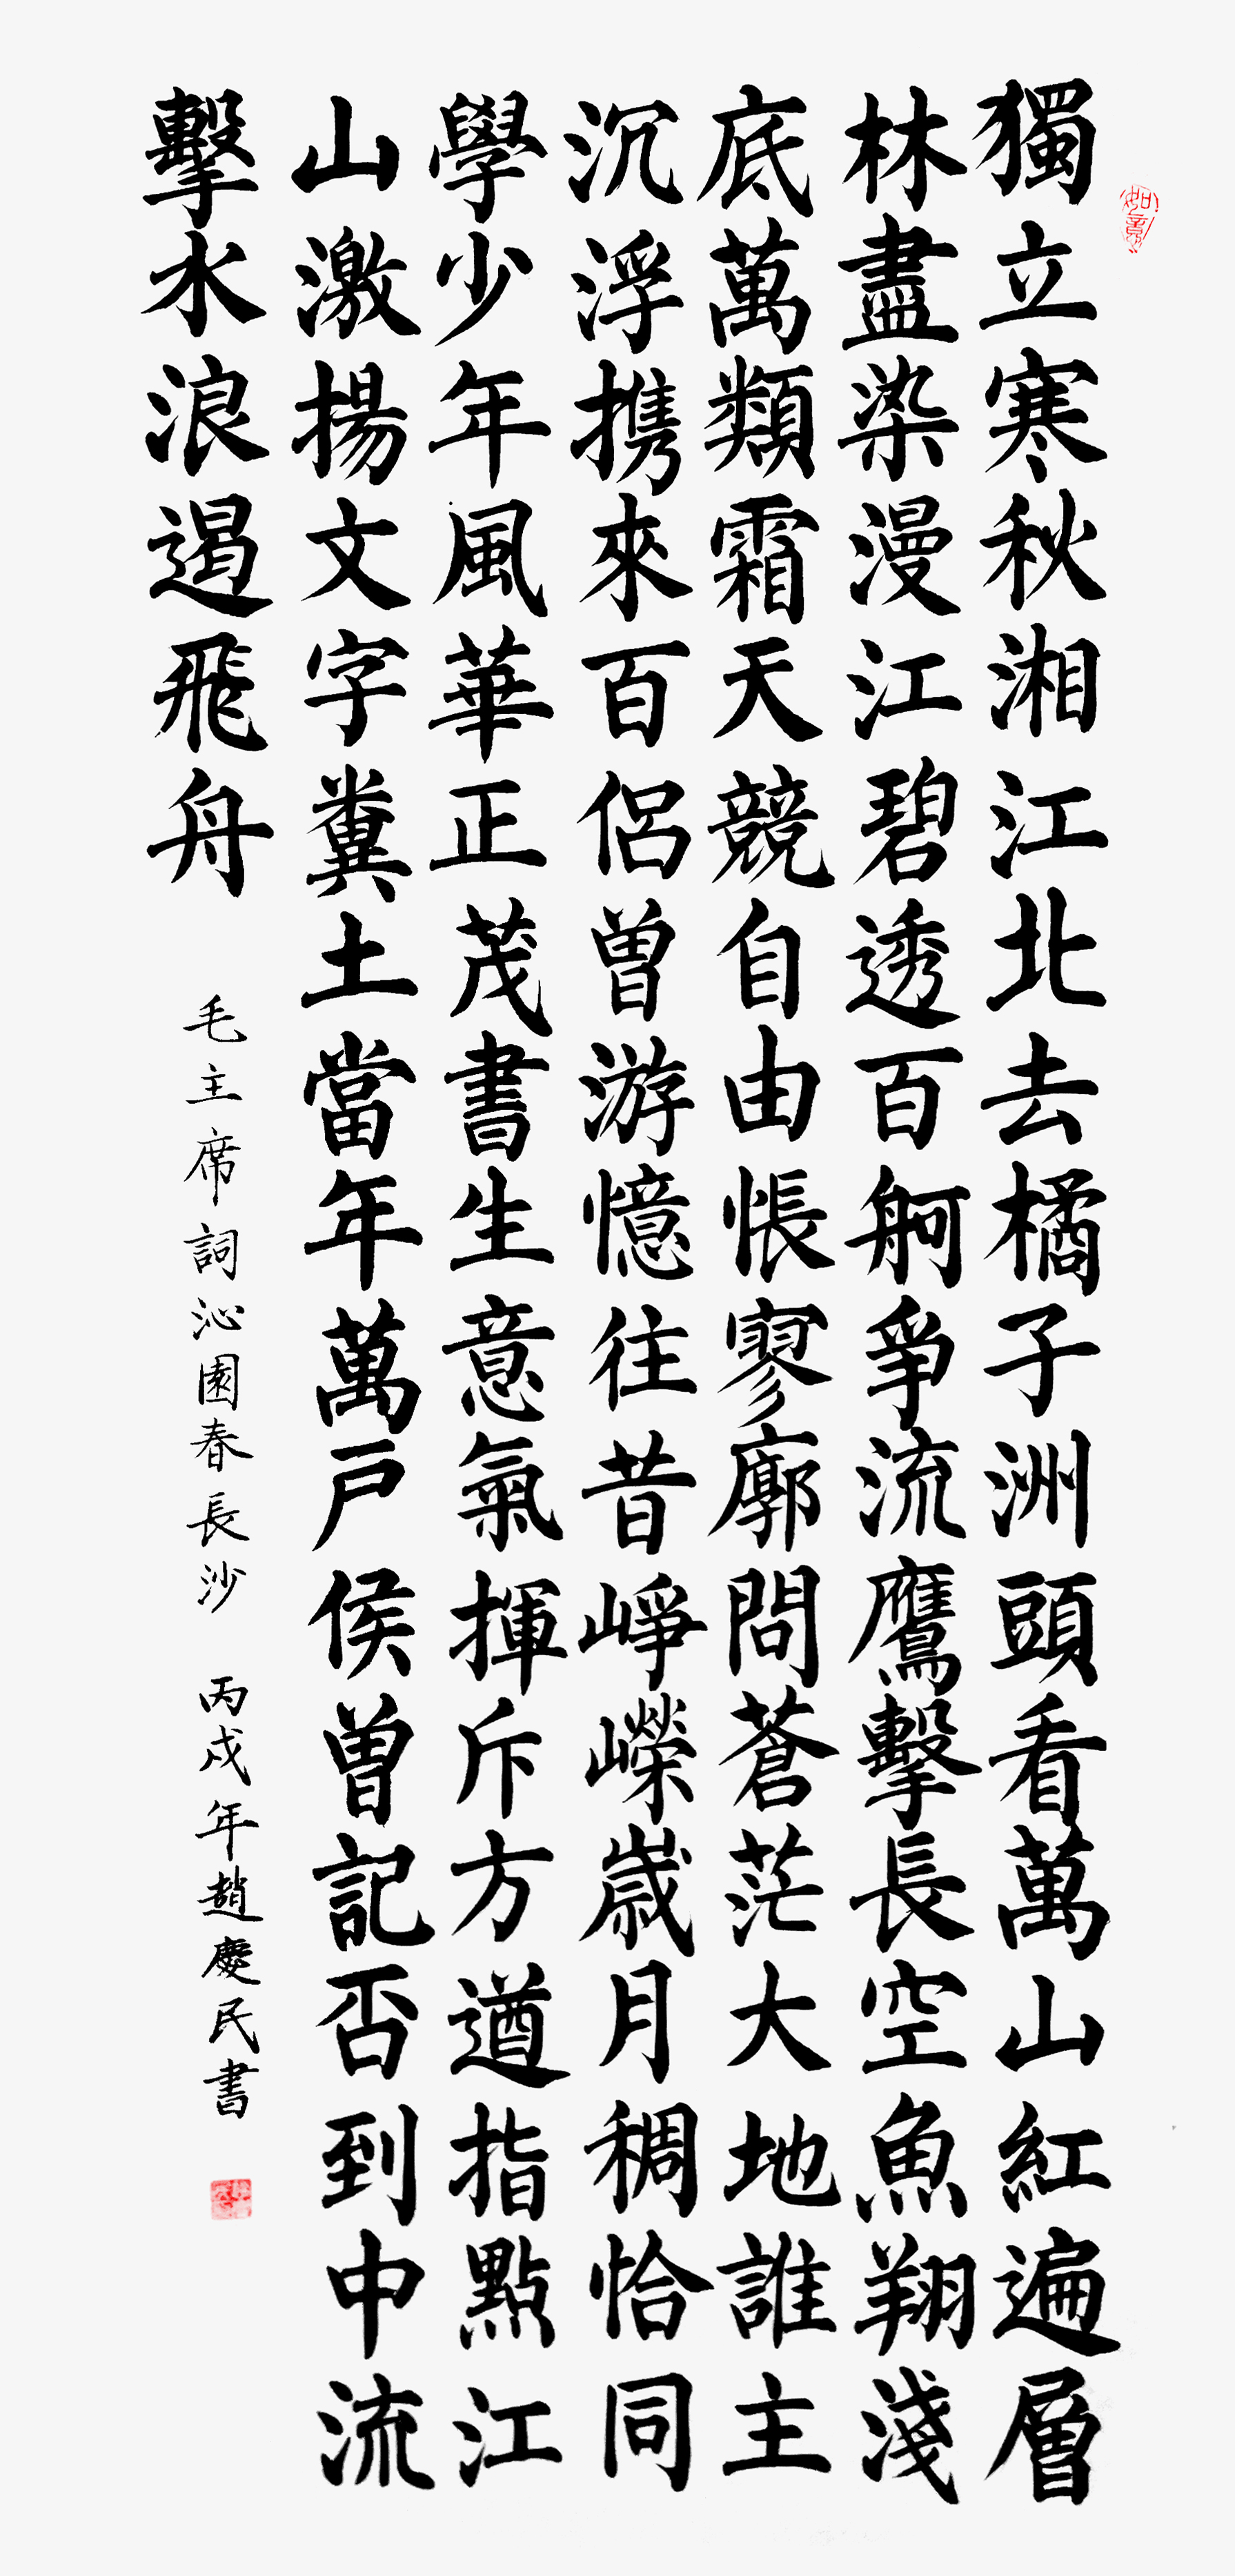 如意
獨立寒秋湘江北去橘子洲頭看萬山紅遍層
林盡染漫江碧透百舸爭流鷹擊長空魚翔淺
底萬類霜天競自由悵寥廓問蒼茫大地誰主
沉浮携來百侶曾游憶往昔崢嶸歲月稠恰同
學少年風華正茂書生意氣揮斥方遒指點江
山激揚文字糞土當年萬户侯曾記否到中流
擊水浪遏飛舟
毛主席詞沁園春長沙 丙戌年趙慶民書